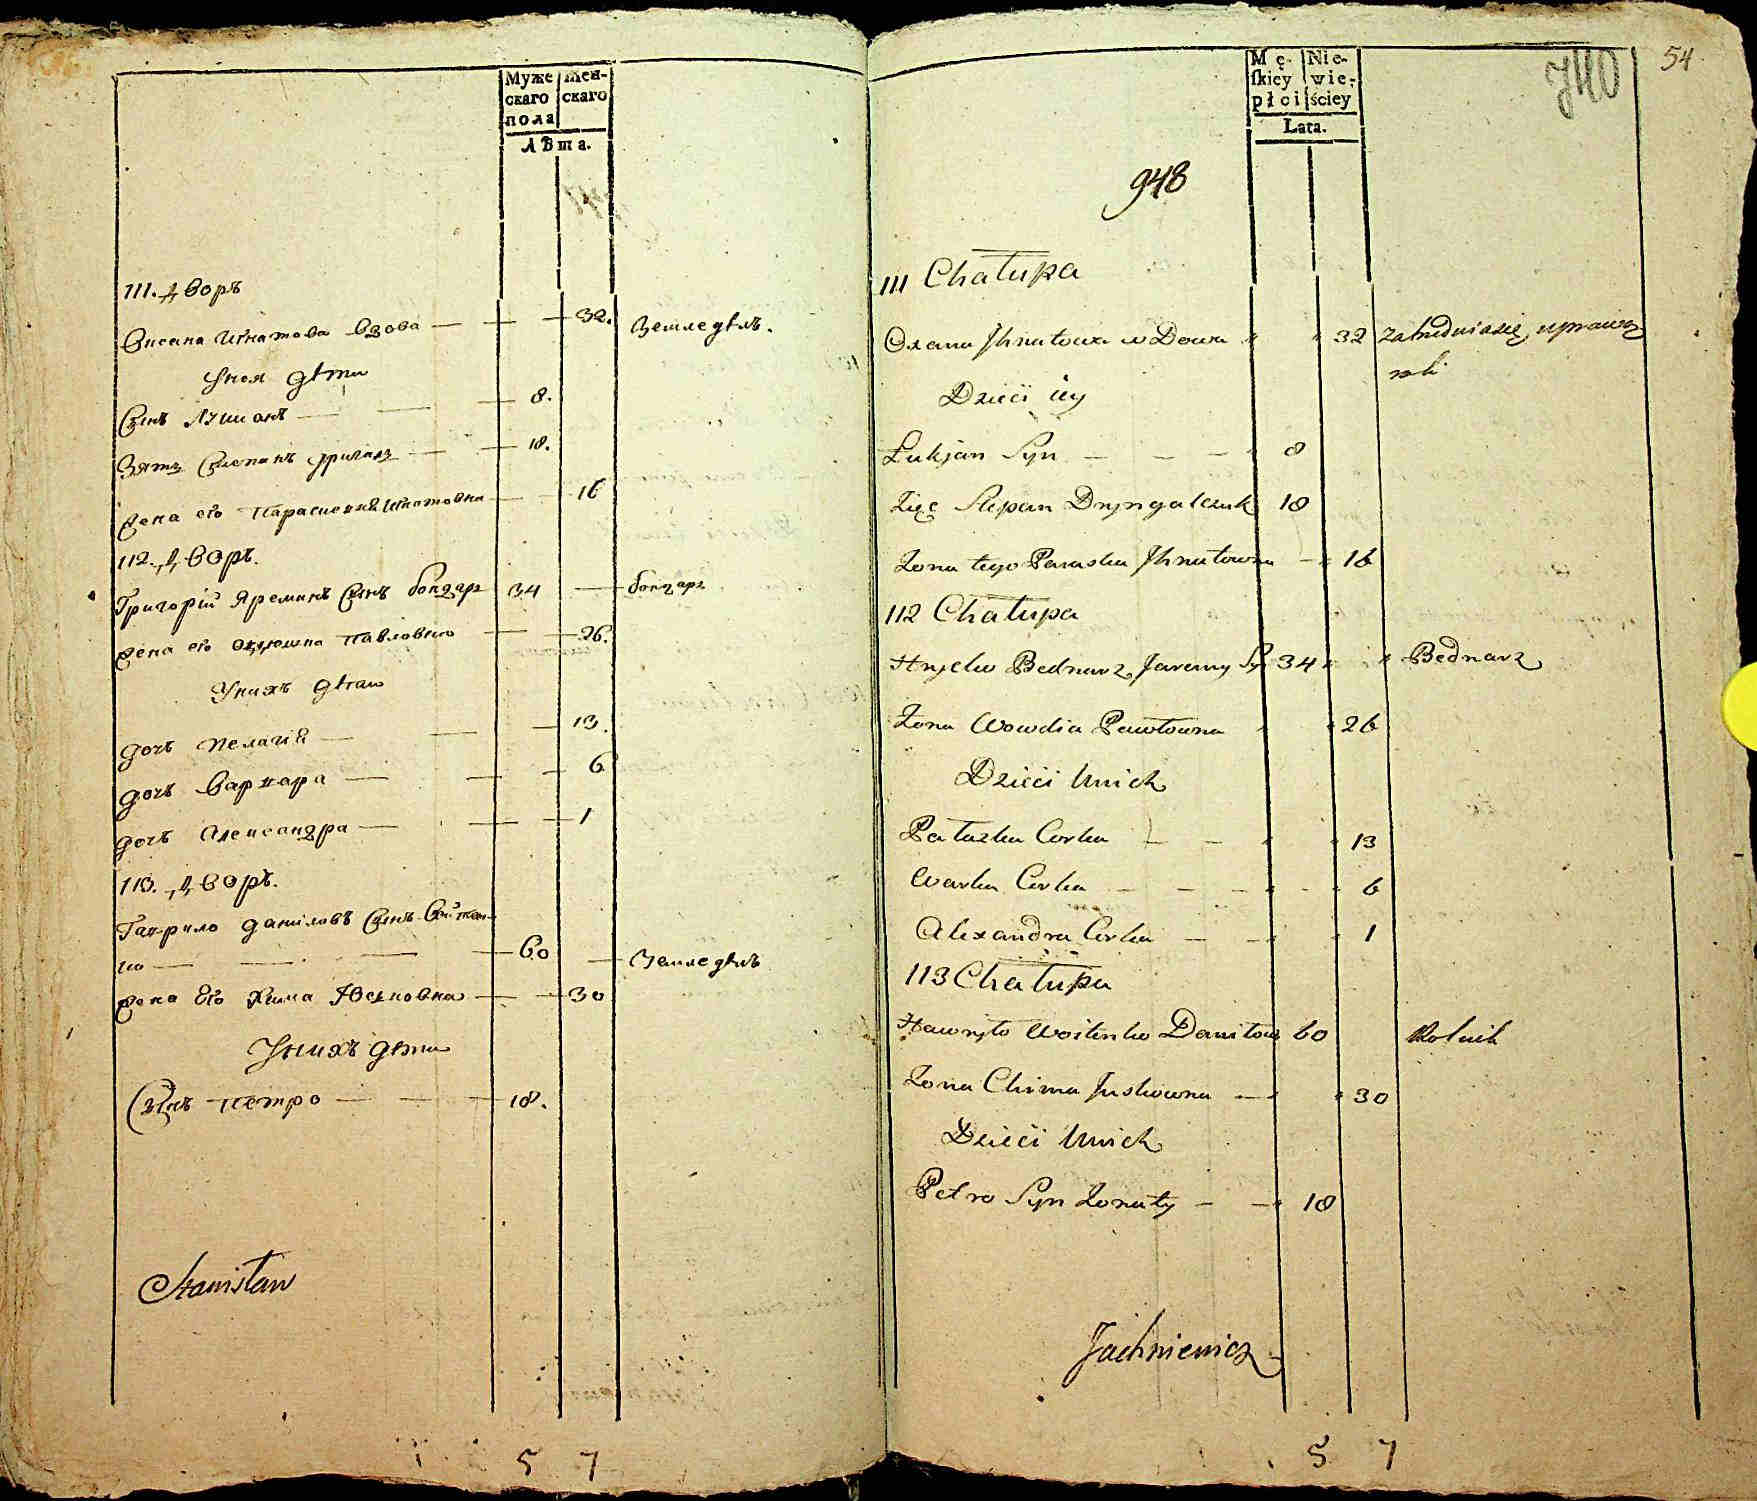 Муже
скаго
пола
Жен-
скаго
Лѣта.
111. Дворъ
Оксана Игнатова Вдова — 32. Земледѣлъ.
Унея дѣти
Сынъ Лукианъ — 8.
Зять Степанъ — 18.
Жена его Параскевия Игнатовна — 16
112. Дворъ.
Григорій Яреминъ Сынъ бондарь 34 — бондарь
Жена его Павловна — 26.
Унихъ дѣти
дочь Пелагія — 13.
дочь Варвара — 6
дочь Александра — 1
113. Дворъ.
Гаврило Даниловъ Сынъ Войтен-
ко — 60 — Земледѣлъ
Жена Его Хима Юсковна — 30
Унихъ дѣти
Сынъ Петро — 18.
Stanisław
5 7
54
740
Mę-
skiey
płci
Nie-
wie-
ściey
Lata.
948
111 Chałupa
Oxana Ihnatowa wDowa " " 32 zatrudnia się uprawą
roli
Dzieci iey
Łukjan Syn — — — 8
Zięć Stepan Dryngalczuk 18
Żona tego Paraska Ihnatowna — " 16
112 Chałupa
Hryćko Bednarz Jaremy Sy 34 " " Bednarz
Żona Wowdia Pawłowna " " 26
Dzieci Unich
Pałazka Corka — — " " 13
Warka Corka — — — " 6
Alexandra Corka — — " 1
113 Chałupa
Hawryło Woitenko Daniłow 60 Rolnik
Żona Chima Juskowna — " " 30
Dzieci Unich
Petro Syn Żonaty — — 18
Jachniewicz
5 7